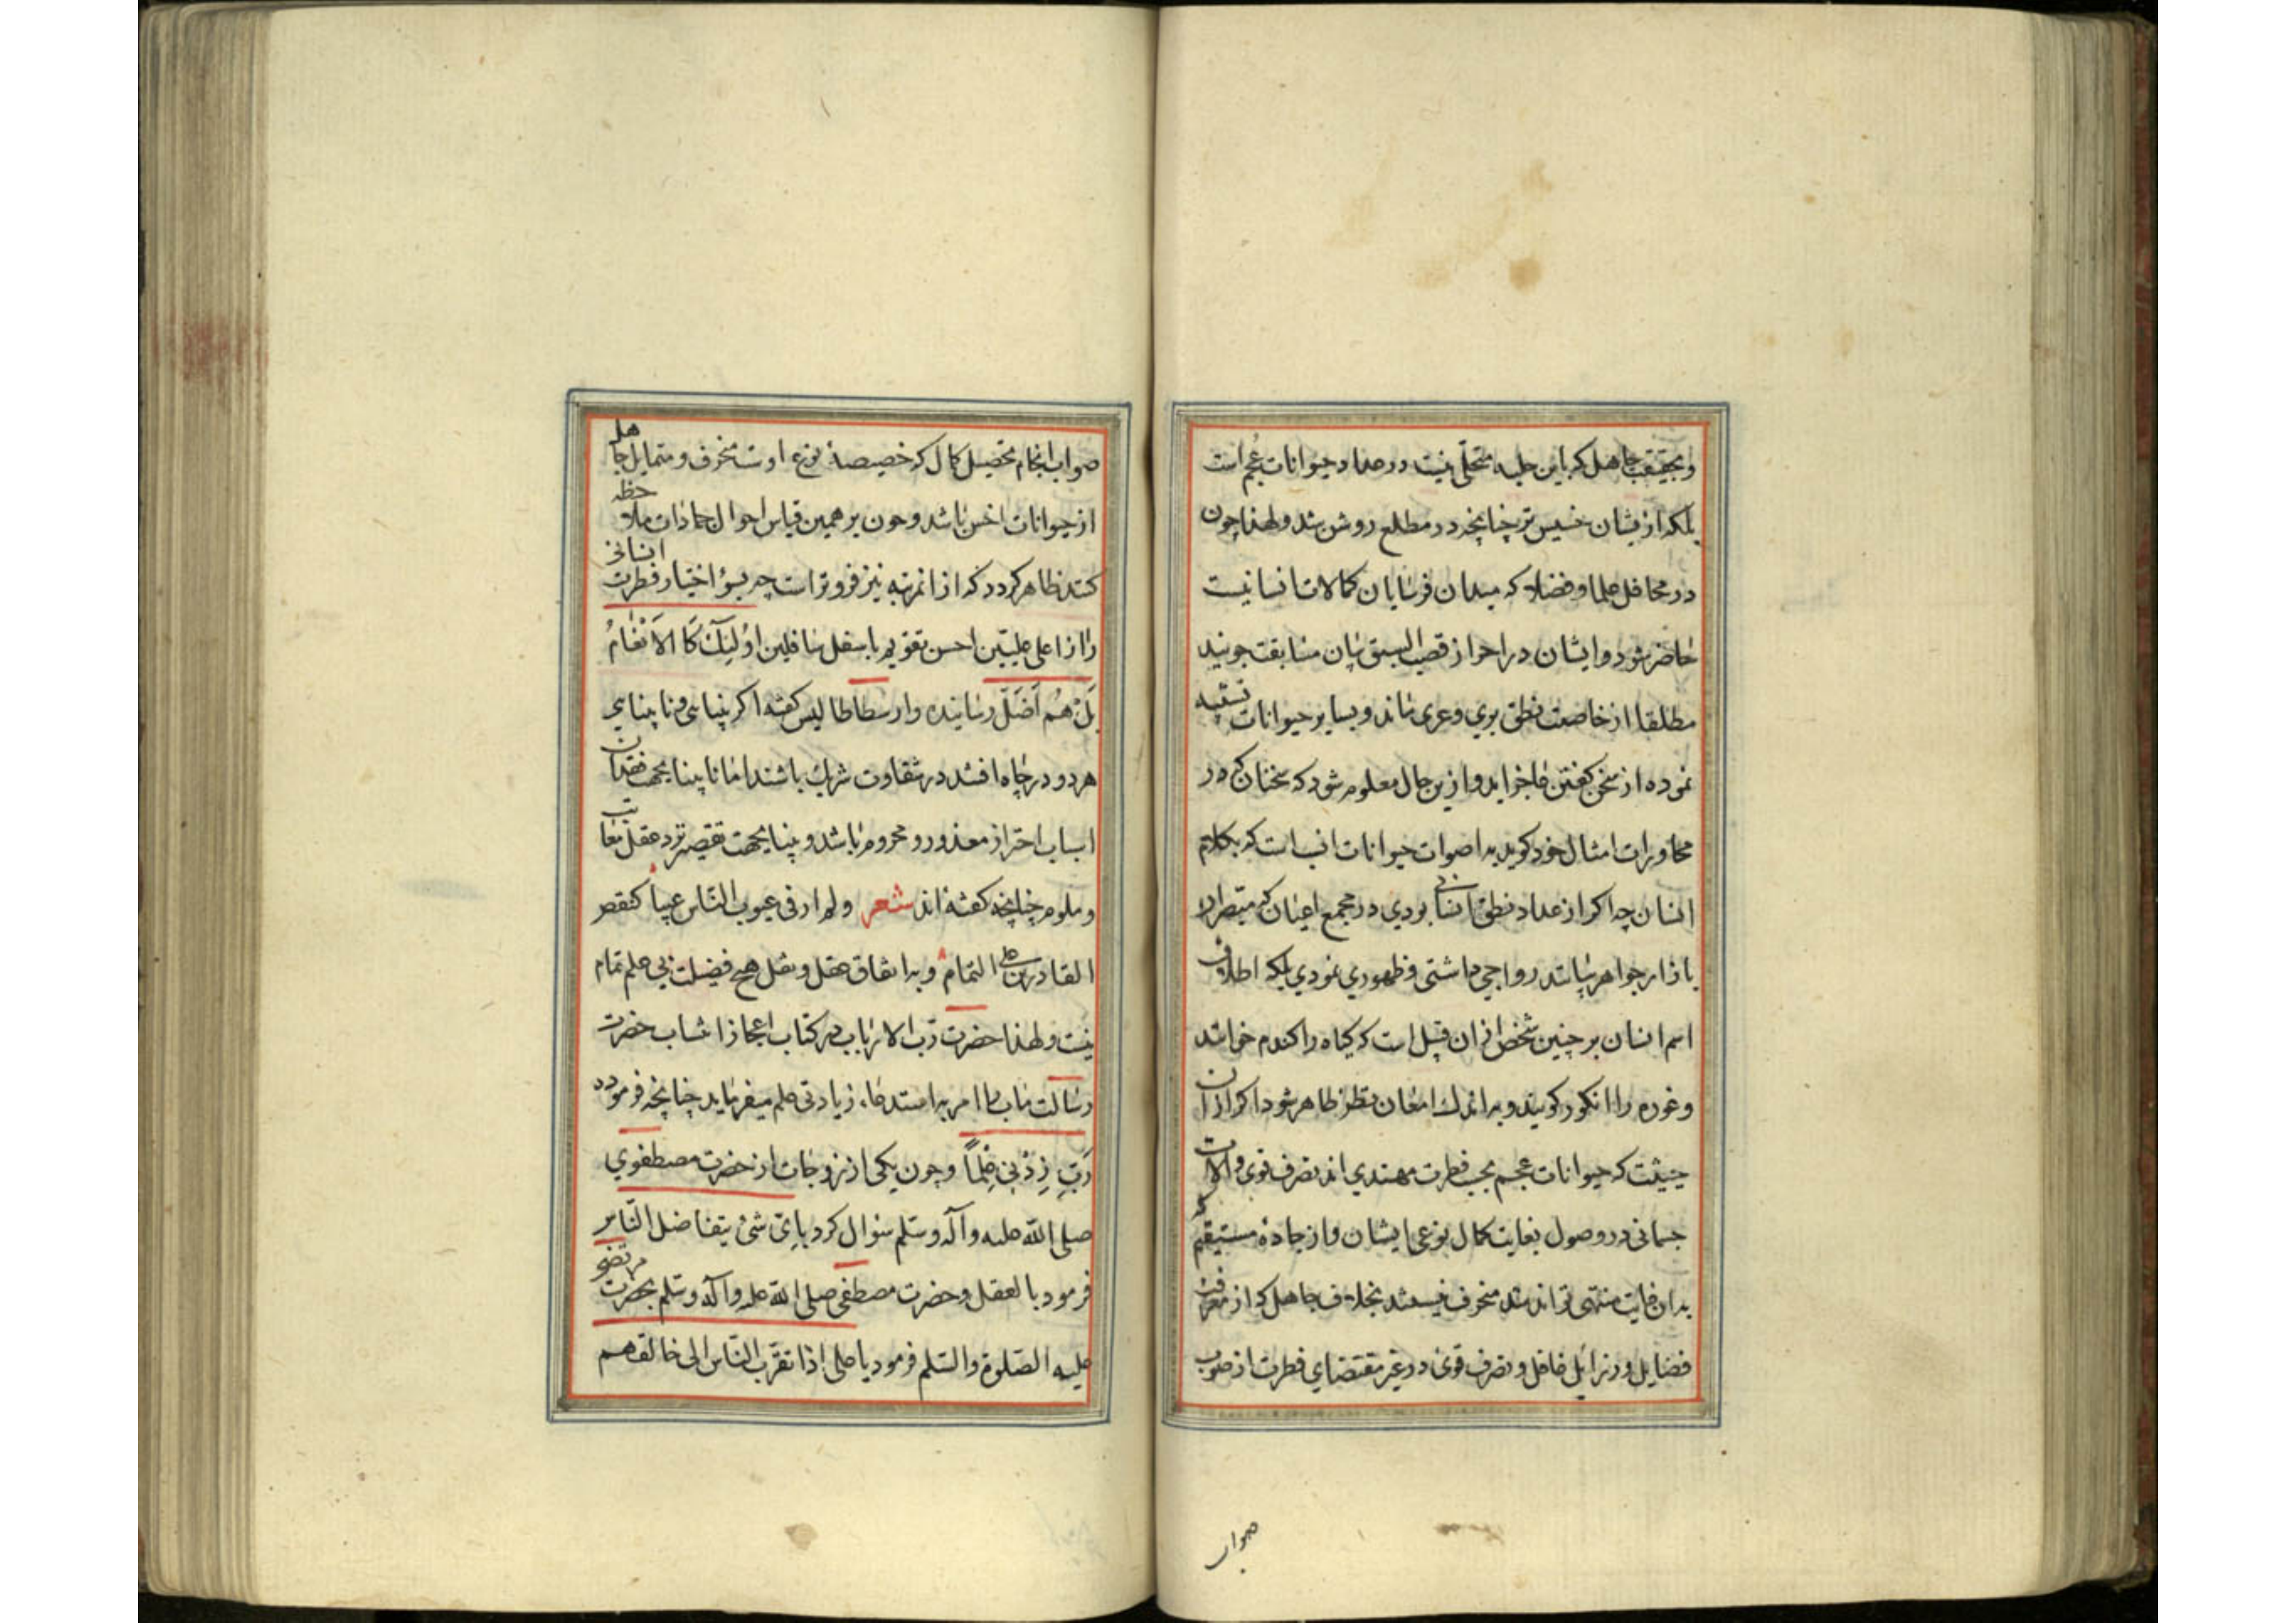 و بحقیقت جاهل که باین حلیه متحلّی نیست در عداد حیوانات عجم است
بلکه ازیشان خسیس تر چنانچه در مطلع روشن شد و لهذا چون
در محافل علما و فضلا که میدان فرسایان کمالات انسانیست
حاضر شود و ایشان در احراز قصب السبق بیان مسابقت جویند
مطلقا از خاصیت نطق بری و عری ماند و بسایر حیوانات تشبّه
نموده از سخن گفتن عاجز آید و ازین حال معلوم شود که سخنان که در
محاورات امثال خود گوید به اصوات حیوانات انسب است که بکلام
انسان چه اگر از عداد نطق انسانی بودی در مجمع اعیان که متبصران
بازار جواهر بیانند رواجی داشتی و ظهوری نمودی بلکه اطلاق
اسم انسان بر چنین شخص از ان قبیل است که گیاه را گندم خوانند
و غوره را انگور گویند و به اندک امعان نظر ظاهر شود اگر از آن
حیثیت که حیوانات عجم بحسب فطرت مهتدی اند بتصرف قوی و آلات
جسمانی در وصول بغایت کمال نوعی ایشان و از جاده مستقیم که
بدان غایت منتهی تواند شد منحرف نیستند بخلاف جاهل که از معرفت
فضایل و رذائل غافل و بصرف قوی در غیر مقتضای فطرت از صوب
صواب
صواب انجام تحصیل کمال که خصیصهٔ نوع اوست منحرف و متمایل جاهل
از حیوانات اخس باشد و چون بر همین قیاس احوال جمادات ملاحظه
کنند ظاهر گردد که از انمرتبه نیز فروتر است چه بسؤ اختیار فطرت انسانی
را از اعلی علیّین احسن تقویم باسفل سافلین اُولٰئِکَ کَالاَنْعَامُ
بَلْ هُم اَضَلّ رسانیده و ارسطاطالیس گفته اگر بینایی و نابینایی
هر دو در چاه افتند در شقاوت شریک باشند اما نابینا بجهت فقدان
اسباب احتراز معذور و محروم باشد و بینا بجهت تقصیر نزد عقل معاتب
و ملوم چنانچه گفته اند شعر ولم ار فی عیوب النّاس عیباً کنقص
القادرین علی التمام و به اتفاق عقل و نقل هیچ فضیلت بی علم تمام
نیست و لهذا حضرت ربّ الارباب در کتاب اعجاز انتساب حضرت
رسالت مآب را امر به استدعاء زیادتی علم میفرماید چنانچه فرموده
رَبِّ زِدْنِی عِلْماً و چون یکی از زوجات از حضرت مصطفوی
صلی الله علیه و آله و سلم سئوال کرد بایّ شئ یتفاضل النّاس
فرمود بالعقل و حضرت مصطفی صلی الله علیه و آله و سلم بحضرت مرتضی
علیه الصّلوة والسّلم فرمود یا علی اذا تقرّب النّاس الی خالقهم